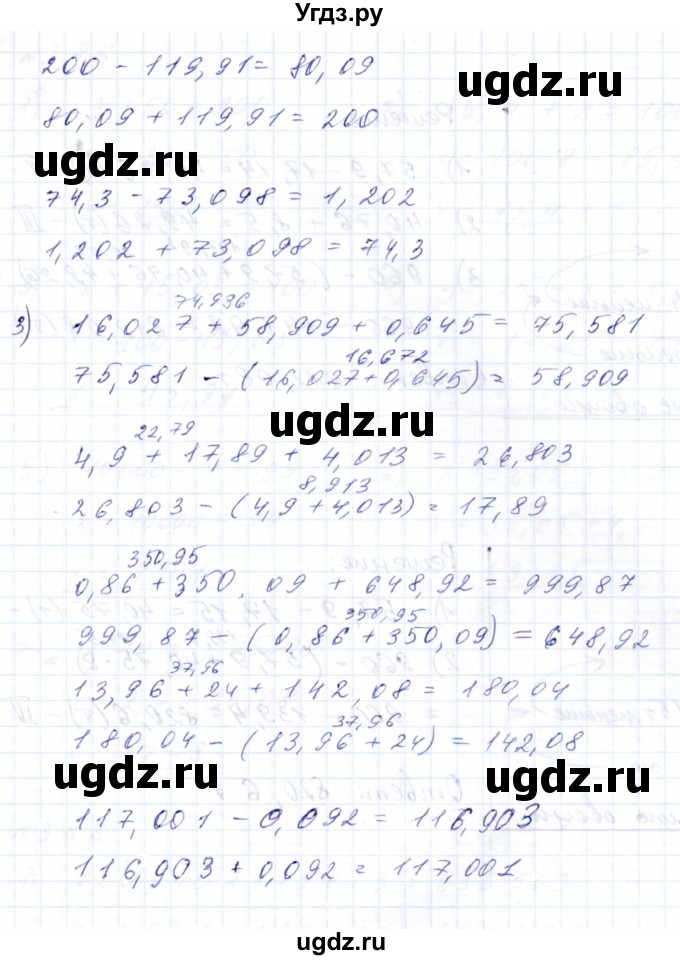 Угдз.ру
200 - 119,91 = 80,09
80,09 + 119,91 = 200
ugdz.ru
ugdz.ru
74,3 - 73,098 = 1,202
1,202 + 73,098 = 74,3
74,936
3) 16,027 + 58,909 + 0,645 = 75,581
16,672
75,581 - (16,027+0,645) = 58,909
ugdz.ru
22,79
4,9 + 17,89 + 4,013 = 26,803
8,913
26,803 - (4,9 + 4,013) = 17,89
350,95
0,86 + 350,09 + 648,92 = 999,87
350,95
999,87 - (0,86 + 350,09) = 648,92
37,96
13,96 + 24 + 142,08 = 180,04
37,96
180,04 - (13,96 + 24) = 142,08
ugdz.ru
ugdz.ru
117,001 - 0,092 = 116,903
116,903 + 0,092 = 117,001
ugdz.ru